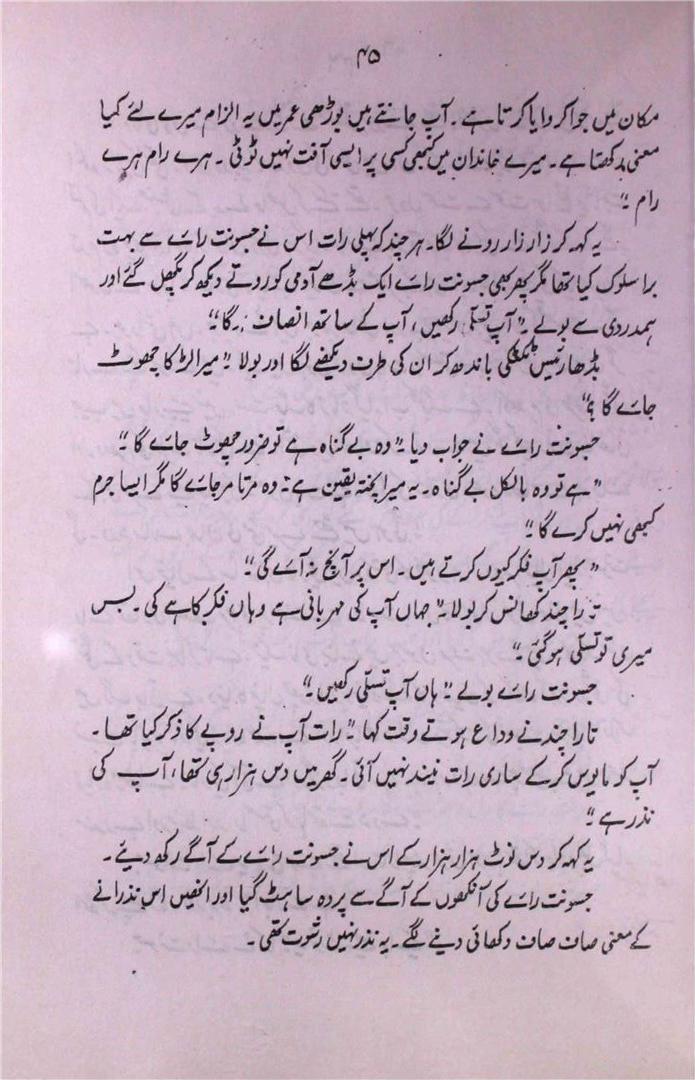 ۴۵
مکان میں جوا کروایا کرتا ہے۔ آپ جانتے ہیں بوڑھی عمر میں یہ الزام میرے لئے کیا
معنی رکھتا ہے۔ میرے خاندان میں کبھی کسی پر ایسی آفت نہیں ٹوٹی۔ ہرے رام ہرے
رام۔"
یہ کہہ کر زار زار رونے لگا۔ ہر چند کہ پہلی رات اس نے جسونت رائے سے بہت
برا سلوک کیا تھا مگر پھر بھی جسونت رائے ایک بڈھے آدمی کو روتے دیکھ کر پگھل گئے اور
ہمدردی سے بولے۔" آپ تسلی رکھیں، آپ کے ساتھ انصاف ہوگا۔"
بڈھا رئیس ٹکٹکی باندھ کر ان کی طرف دیکھنے لگا اور بولا۔" میرا لڑکا چھوٹ
جائے گا؟"
جسونت رائے نے جواب دیا۔" وہ بے گناہ ہے تو ضرور چھوٹ جائے گا۔"
"ہے تو وہ بالکل بے گناہ۔ یہ میرا پختہ یقین ہے۔ وہ مرتا مر جائے گا مگر ایسا جرم
کبھی نہیں کرے گا۔"
"پھر آپ فکر کیوں کرتے ہیں۔ اس پر آنچ نہ آئے گی۔"
تارا چند کھانس کر بولا۔" جہاں آپ کی مہربانی ہے وہاں فکر کاہے کی۔ بس
میری تو تسلی ہو گئی۔"
جسونت رائے بولے۔" ہاں آپ تسلی رکھیں۔"
تارا چند نے وداع ہوتے وقت کہا۔" رات آپ نے روپے کا ذکر کیا تھا۔
آپ کو مایوس کر کے ساری رات نیند نہیں آئی۔ گھر میں دس ہزار ہی تھا، آپ کی
نذر ہے۔"
یہ کہہ کر دس نوٹ ہزار ہزار کے اس نے جسونت رائے کے آگے رکھ دیئے۔
جسونت رائے کی آنکھوں کے آگے سے پردہ سا ہٹ گیا اور انھیں اس نذرانے
کے معنی صاف صاف دکھائی دینے لگے۔ یہ نذر نہیں رشوت تھی۔